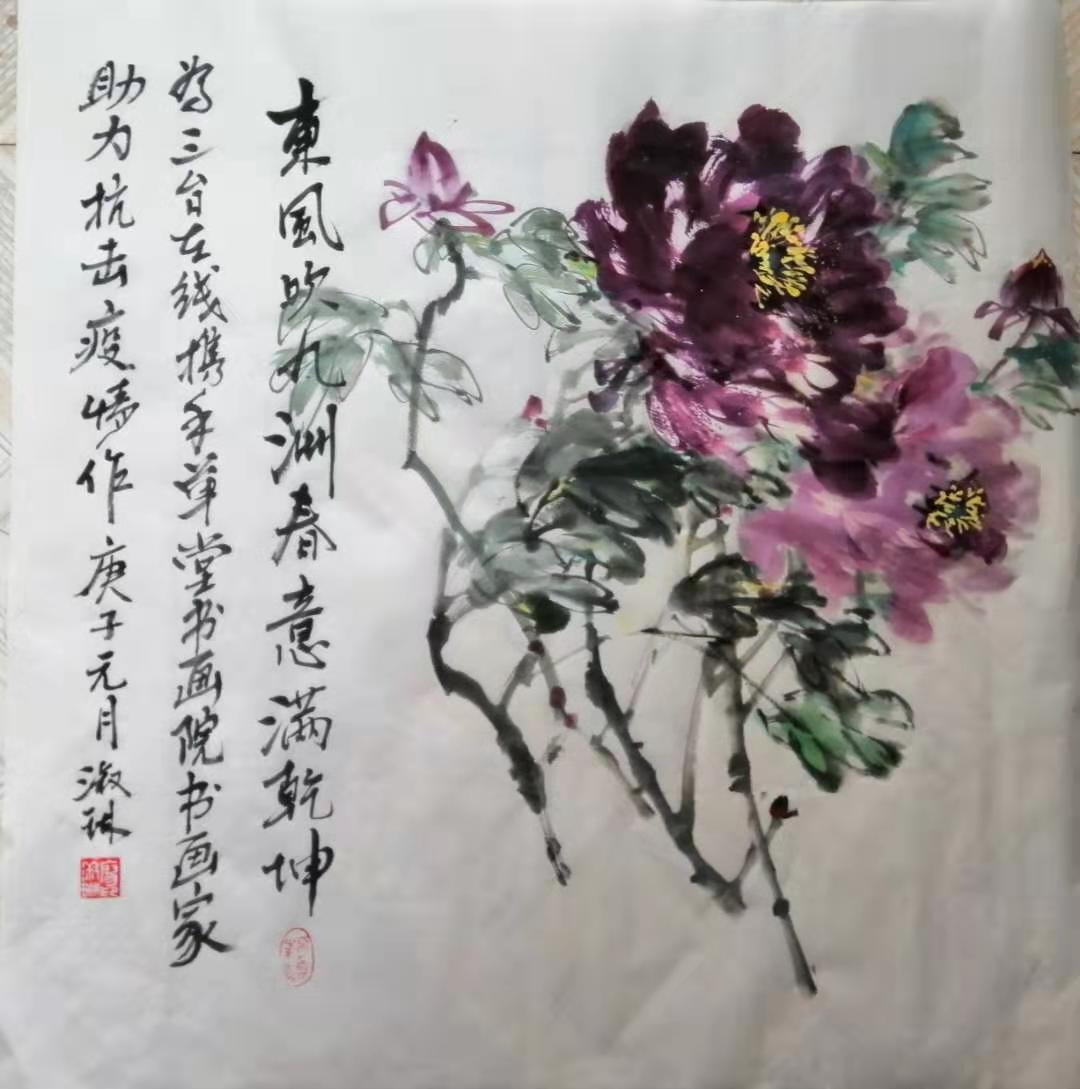 東風吹九洲春意满乾坤
为三台在线携手草堂书画院书画家
助力抗击疫情作 庚子元月 淑琳